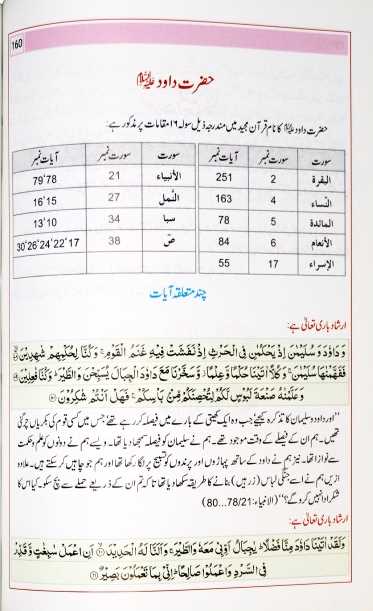 160
حضرت داود علیہ السلام
حضرت داود علیہ السلام کا نام قرآن مجید میں مندرجہ ذیل سولہ ۱۶ مقامات پر مذکور ہے:
سورت سورت نمبر آیات نمبر سورت سورت نمبر آیات نمبر
البقرة 2 251 الأنبياء 21 79'78
النساء 4 163 النّمل 27 16'15
المائدة 5 78 سبا 34 13'10
الأنعام 6 84 صٓ 38 30'26'24'22'17
الإسراء 17 55
چند متعلقہ آیات
ارشاد باری تعالٰی ہے:
وَدَاوٗدَ وَسُلَيْمٰنَ اِذْ يَحْكُمٰنِ فِي الْحَرْثِ اِذْ نَفَشَتْ فِيْهِ غَنَمُ الْقَوْمِ ۚ وَكُنَّا لِحُكْمِهِمْ شٰهِدِيْنَ
فَفَهَّمْنٰهَا سُلَيْمٰنَ ۚ وَكُلًّا اٰتَيْنَا حُكْمًا وَّعِلْمًا ۡ وَّسَخَّرْنَا مَعَ دَاوٗدَ الْجِبَالَ يُسَبِّحْنَ وَالطَّيْرَ ۭ وَكُنَّا فٰعِلِيْنَ
وَعَلَّمْنٰهُ صَنْعَةَ لَبُوْسٍ لَّكُمْ لِتُحْصِنَكُمْ مِّنْ بَاْسِكُمْ ۚ فَهَلْ اَنْتُمْ شٰكِرُوْنَ
"اور داود و سلیمان کا تذکرہ کیجئے جب وہ ایک کھیتی کے بارے میں فیصلہ کر رہے تھے جس میں کسی قوم کی بکریاں چر گئی
تھیں۔ ہم ان کے فیصلے کے وقت موجود تھے۔ ہم نے سلیمان کو فیصلہ سمجھا دیا تھا۔ ویسے ہم نے دونوں کو علم و حکمت
سے نوازا تھا۔ نیز ہم نے داود کے ساتھ پہاڑوں اور پرندوں کو تسبیح پر لگا رکھا تھا اور ہم جو چاہیں کر سکتے ہیں۔ علاوہ
ازیں ہم نے اسے جنگی لباس (زرہیں) بنانے کا طریقہ سکھا دیا تھا تاکہ تم ان کے ذریعے حملے سے بچ سکو۔ کیا اس کا
شکر ادا نہیں کرو گے؟" (الانبیاء: 78/21...80)
ارشاد باری تعالٰی ہے:
وَلَقَدْ اٰتَيْنَا دَاوٗدَ مِنَّا فَضْلًا ۭ يٰجِبَالُ اَوِّبِيْ مَعَهٗ وَالطَّيْرَ ۚ وَاَلَنَّا لَهُ الْحَدِيْدَ ۙ اَنِ اعْمَلْ سٰبِغٰتٍ وَّقَدِّرْ
فِي السَّرْدِ وَاعْمَلُوْا صَالِحًا ۭ اِنِّيْ بِمَا تَعْمَلُوْنَ بَصِيْرٌ